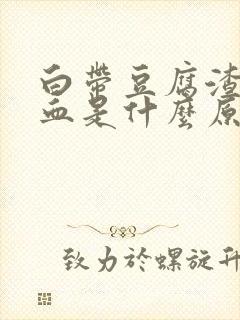 白带豆腐渣
血是什麼原
致力於螺旋升